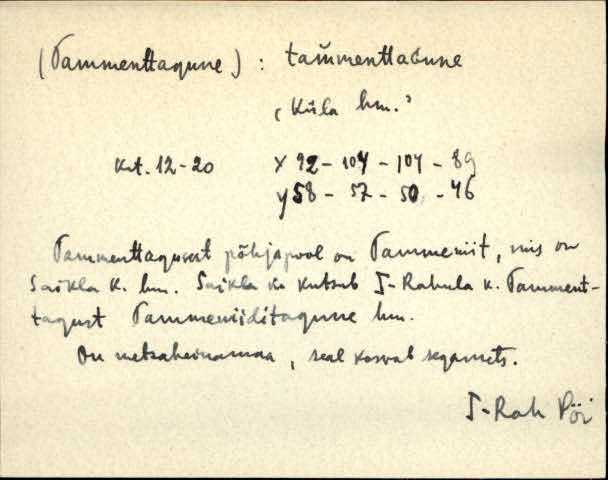 (Tammenttagune) : tam̆menttaGune
‘Küla hm.’
Krt. 12-20 X 92 - 104 - 104 - 89
y 58 - 57 - 50 - 46
Tammenttagusest põhjapool on Tammeniit, mis on
Saikla k. hm. Saikla k. kutsub I-Rahula k. Tamment-
tagust Tammeniiditagune hm.
On metsaheinamaa, seal kasvab segamets.
I-Rah Pöi